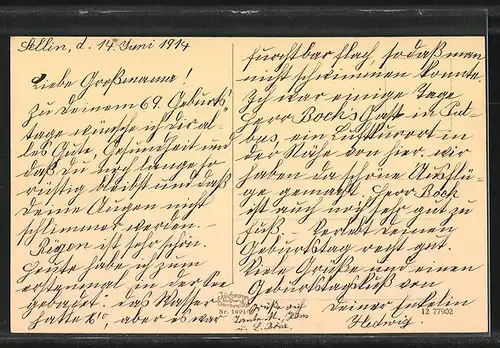 Sellin, d. 14. Juni 1914
Liebe Großmama!
Zu deinem 69. Geburts-
tage wünsche ich dir al-
les Gute, Gesundheit und
daß du noch lange so
rüstig bleibst und daß
deine Augen nicht
schlimmer werden. –
Rügen ist sehr schön.
Heute habe ich zum
erstenmal in der See
gebadet. das Wasser
hatte 16°, aber es war
furchtbar flach, sodaß man
nicht schwimmen konnte.
Ich war einige Tage
Herr Bocks Gast in Put-
bus, ein Luftkurort in
der Nähe von hier. wir
haben da schöne Ausflü-
ge gemacht. Herr Bock
ist auch noch sehr gut zu
Fuß. – Verlebt deinen
Geburtstag recht gut.
Viele Grüße und einen
Geburtstagskuß von
deiner Enkelin
Hedwig.
Grüße auch
Tante M., Hans
u. L. Bock.
12 77902